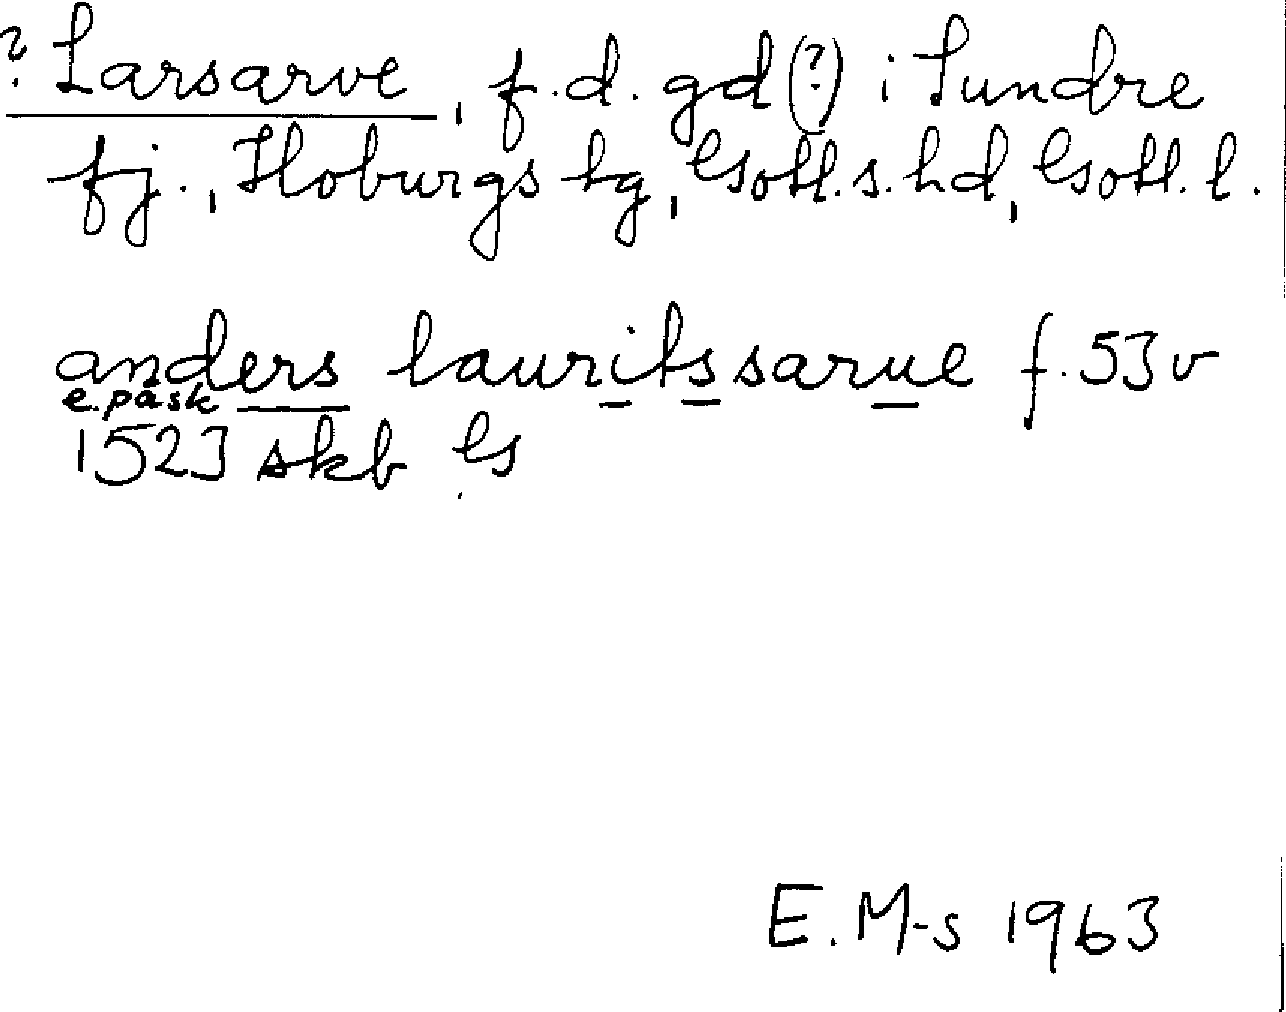 ? Larsarve, f.d. gd (?) i Sundre
fj., Hoburgs tg, Gotl. s. hd, Gotl. l.
anders lauritssarue f. 53 v
e. påsk
1523 skb G
E. M-s 1963